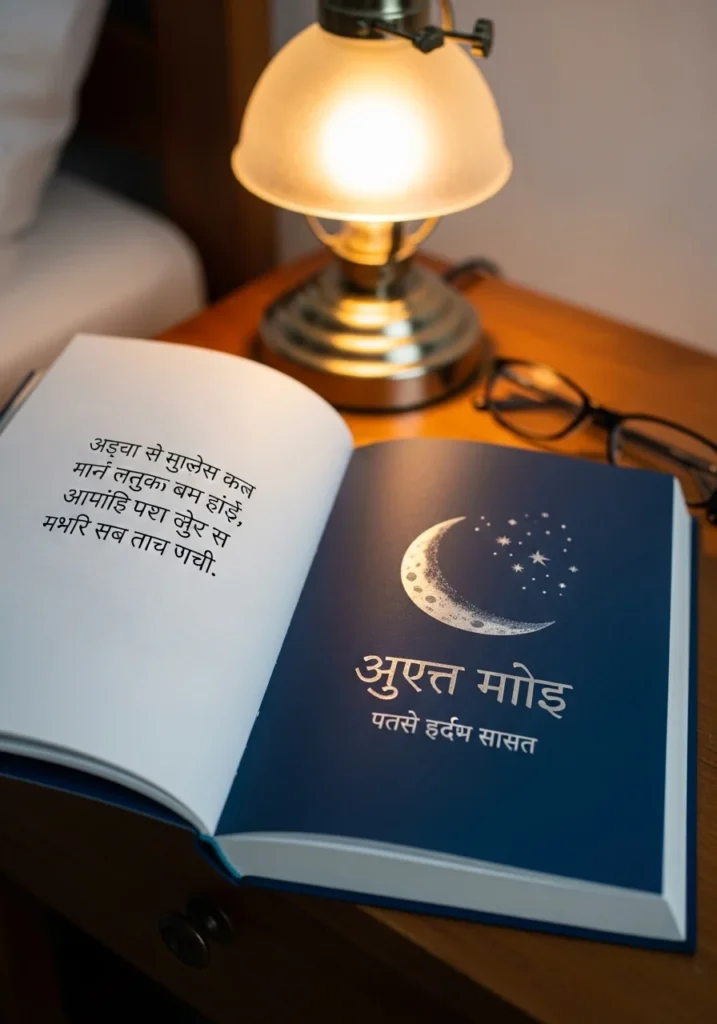 अड़वा से मुालेस कल
मार्न लतुका बम हांईं,
आपांहि पश जुेर स
मभरि सब ताच णची.
अुएत्त माोइ
पतसे हर्दण सासत